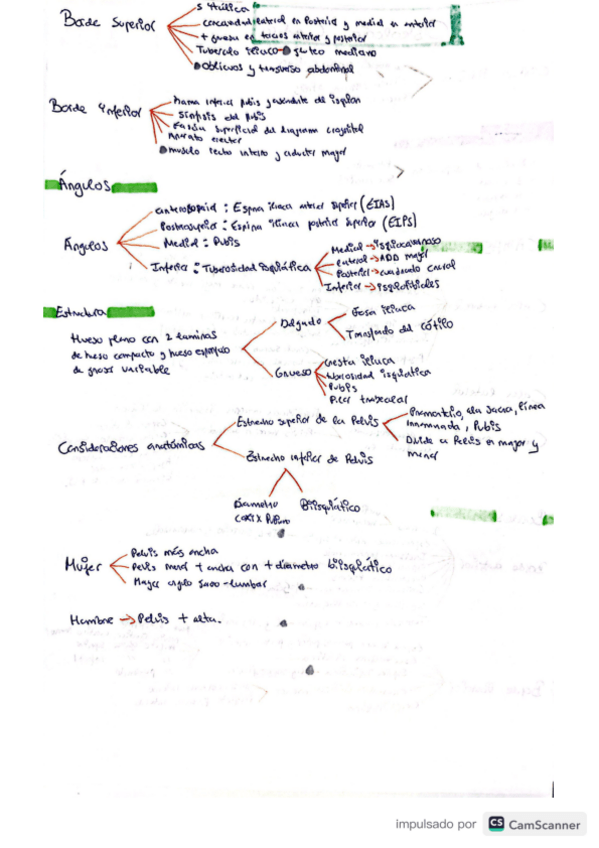 Borde Superior
S itálica
concavidad lateral en posterior y medial en anterior
+ grueso en tercios anterior y posterior
Tuberculo iliaco glúteo mediano
oblicuos y transverso abdominal
Borde Inferior
Rama inferior Pubis y ascendente del isquion
Sinfisis del Pubis
Fascia superficial del diagrama urogenital
Aparato erector
musculo recto interno y aductor mayor
Ángulos
Ángulos
anterosuperior : Espina iliaca anterior superior (EIAS)
Posterosuperior : Espina iliaca posterior superior (EIPS)
Medial : Pubis
Inferior : Tuberosidad Isquiática
Medial → isquiocavernoso
Lateral → ADD mayor
Posterior → cuadrado crural
Inferior → Isquiotibiales
Estructura
Hueso plano con 2 laminas
de hueso compacto y hueso esponjoso
de grosor variable
Delgado
Fosa iliaca
Transfondo del cótilo
Grueso
Cresta iliaca
tuberosidad isquiatica
Pubis
Pilar trabecular
Consideraciones anatómicas
Estrecho superior de la Pelvis
Promontorio, ala sacra, línea
innominada, Pubis
Divide a Pelvis en mayor y
menor
Estrecho inferior de Pelvis
Diametro
coxi x Pubiano
Biisquiático
Mujer
Pelvis más ancha
Pelvis menor + ancha con + diametro biisquiático
Mayor angulo sacro-lumbar
Hombre → Pelvis + alta.
impulsado por CS CamScanner